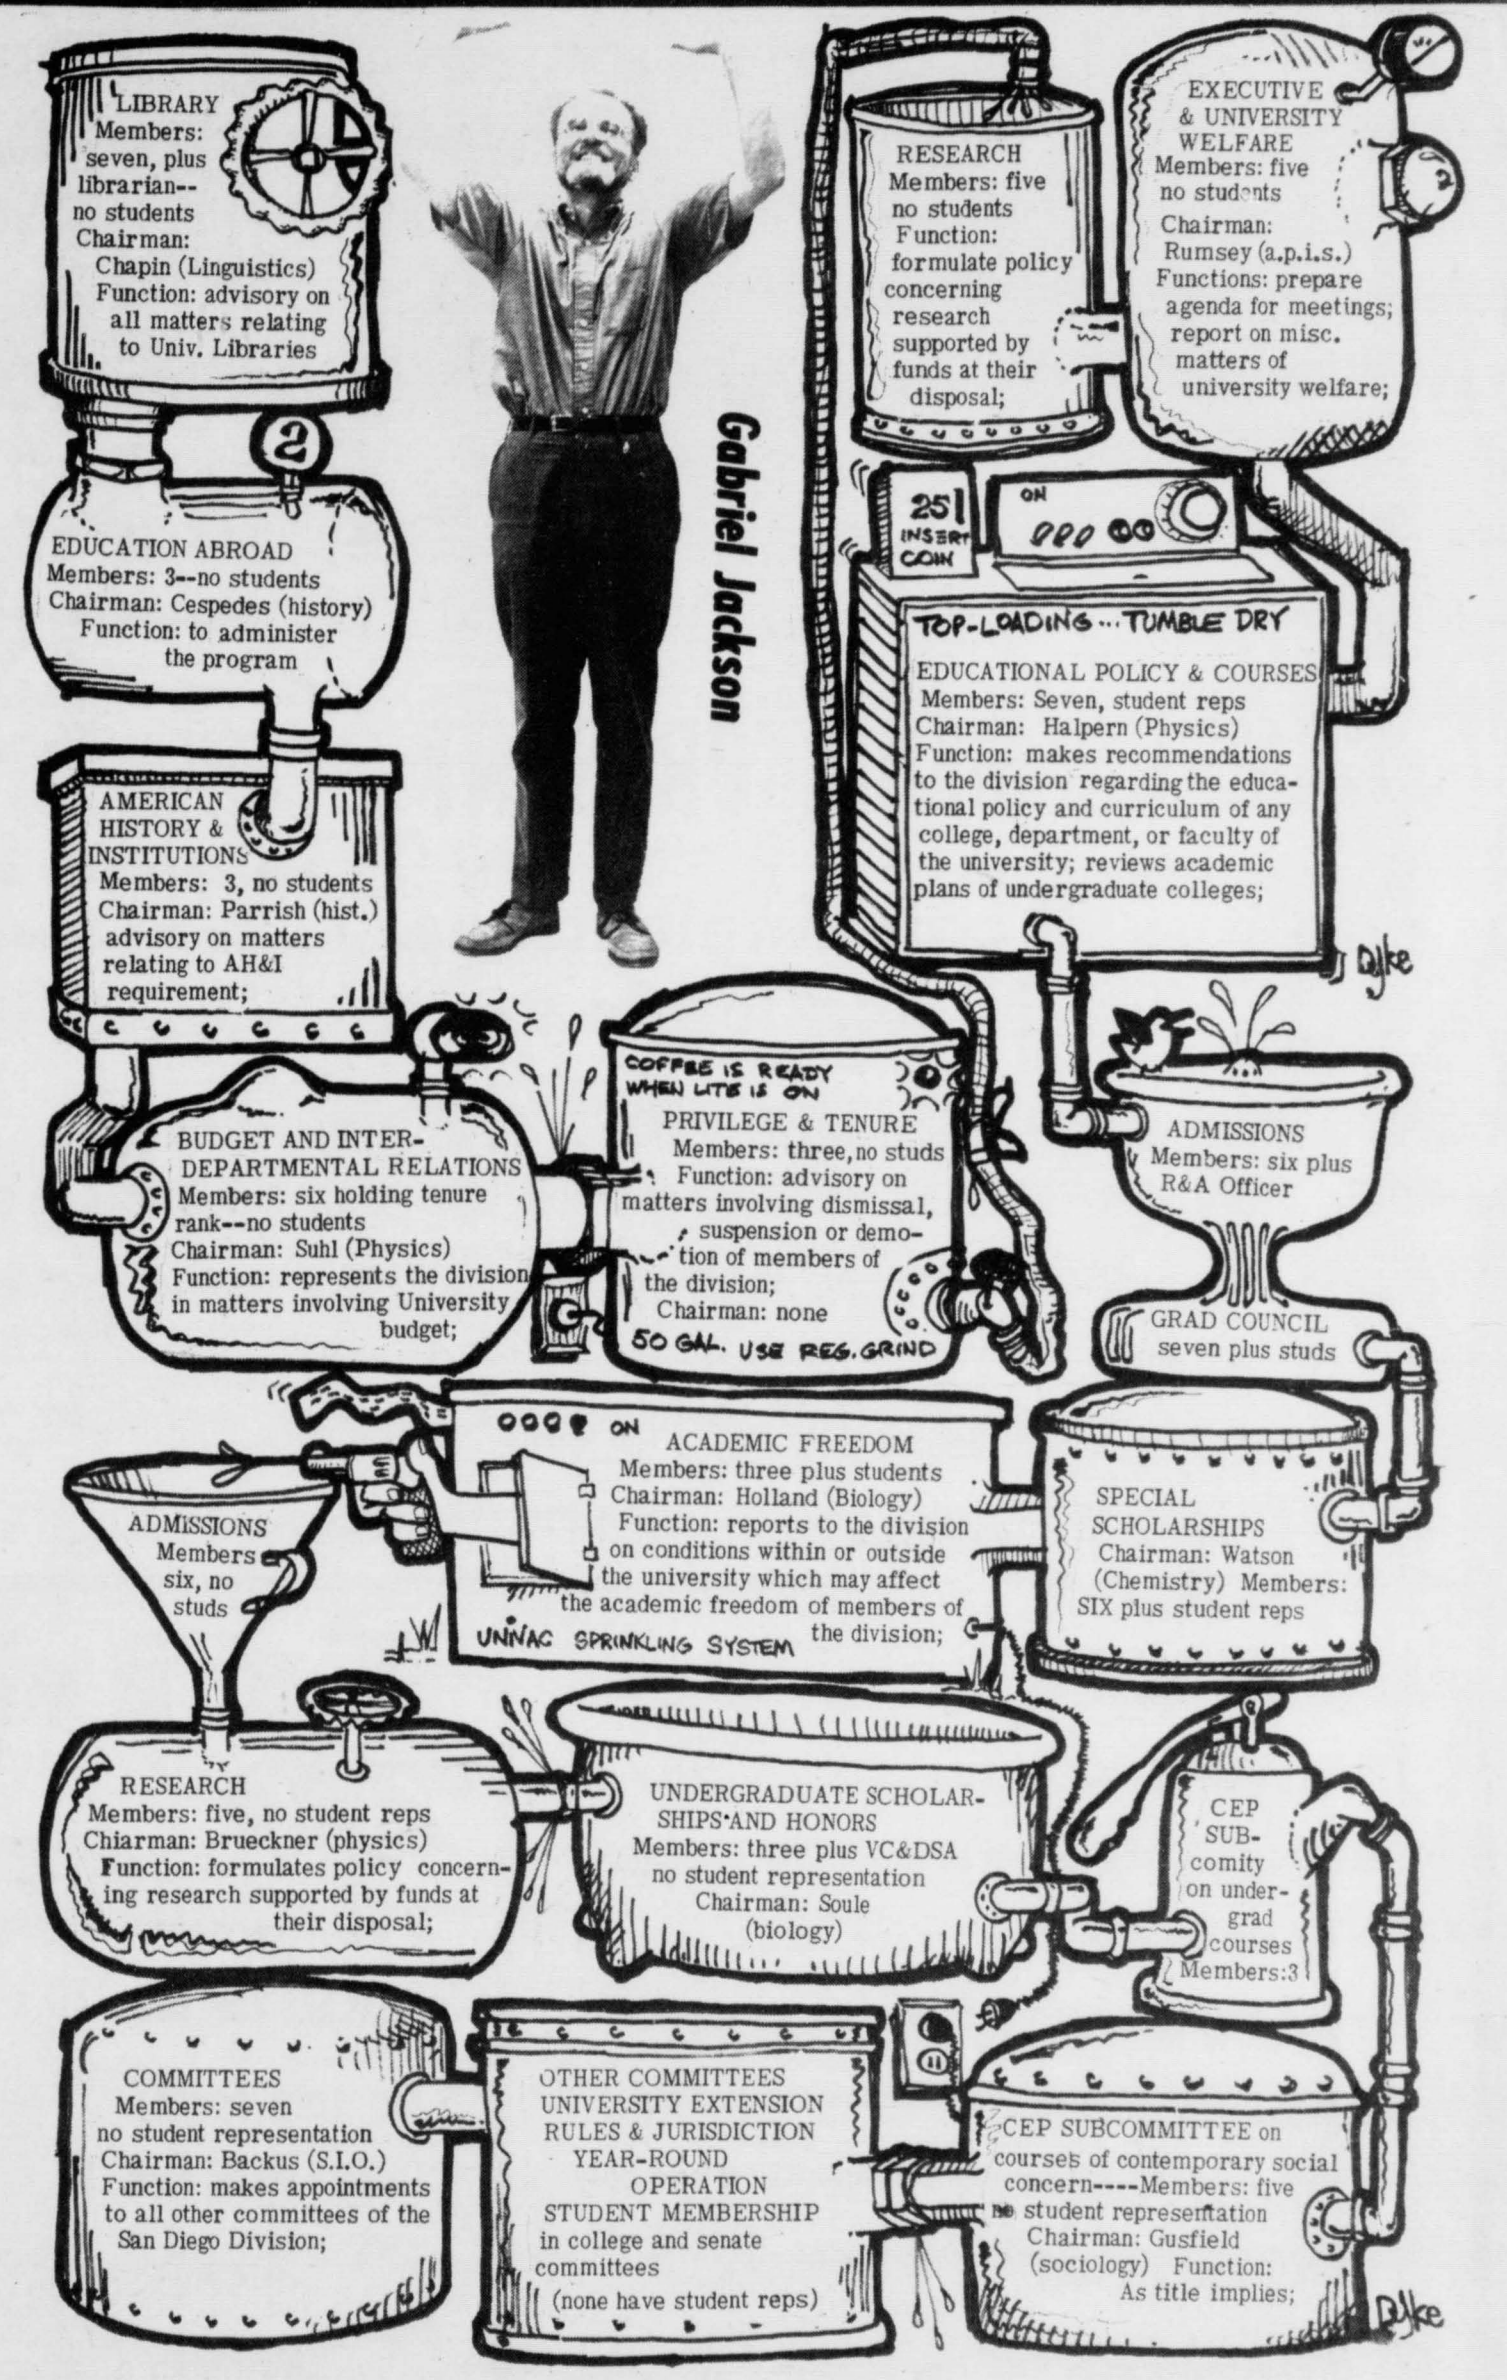 LIBRARY
Members:
seven, plus
librarian--
no students
Chairman:
Chapin (Linguistics)
Function: advisory on
all matters relating
to Univ. Libraries
2
EDUCATION ABROAD
Members: 3--no students
Chairman: Cespedes (history)
Function: to administer
the program
AMERICAN
HISTORY &
INSTITUTIONS
Members: 3, no students
Chairman: Parrish (hist.)
advisory on matters
relating to AH&I
requirement;
BUDGET AND INTER-
DEPARTMENTAL RELATIONS
Members: six holding tenure
rank--no students
Chairman: Suhl (Physics)
Function: represents the division
in matters involving University
budget;
Gabriel Jackson
RESEARCH
Members: five
no students
Function:
formulate policy
concerning
research
supported by
funds at their
disposal;
EXECUTIVE
& UNIVERSITY
WELFARE
Members: five
no students
Chairman:
Rumsey (a.p.i.s.)
Functions: prepare
agenda for meetings;
report on misc.
matters of
university welfare;
25
INSERT
COIN
ON
TOP-LOADING...TUMBLE DRY
EDUCATIONAL POLICY & COURSES
Members: Seven, student reps
Chairman: Halpern (Physics)
Function: makes recommendations
to the division regarding the educa-
tional policy and curriculum of any
college, department, or faculty of
the university; reviews academic
plans of undergraduate colleges;
Dyke
COFFEE IS READY
WHEN LITE IS ON
PRIVILEGE & TENURE
Members: three, no studs
Function: advisory on
matters involving dismissal,
suspension or demo-
tion of members of
the division;
Chairman: none
50 GAL. USE REG. GRIND
ADMISSIONS
Members: six plus
R&A Officer
GRAD COUNCIL
seven plus studs
ON
ACADEMIC FREEDOM
Members: three plus students
Chairman: Holland (Biology)
Function: reports to the division
on conditions within or outside
the university which may affect
the academic freedom of members of
the division;
UNIVAC SPRINKLING SYSTEM
SPECIAL
SCHOLARSHIPS
Chairman: Watson
(Chemistry) Members:
SIX plus student reps
ADMISSIONS
Members
six, no
studs
RESEARCH
Members: five, no student reps
Chiarman: Brueckner (physics)
Function: formulates policy concern-
ing research supported by funds at
their disposal;
UNDERGRADUATE SCHOLAR-
SHIPS AND HONORS
Members: three plus VC&DSA
no student representation
Chairman: Soule
(biology)
CEP
SUB-
comity
on under-
grad
courses
Members:3
COMMITTEES
Members: seven
no student representation
Chairman: Backus (S.I.O.)
Function: makes appointments
to all other committees of the
San Diego Division;
OTHER COMMITTEES
UNIVERSITY EXTENSION
RULES & JURISDICTION
YEAR-ROUND
OPERATION
STUDENT MEMBERSHIP
in college and senate
committees
(none have student reps)
CEP SUBCOMMITTEE on
courses of contemporary social
concern----Members: five
no student representation
Chairman: Gusfield
(sociology) Function:
As title implies;
Dyke